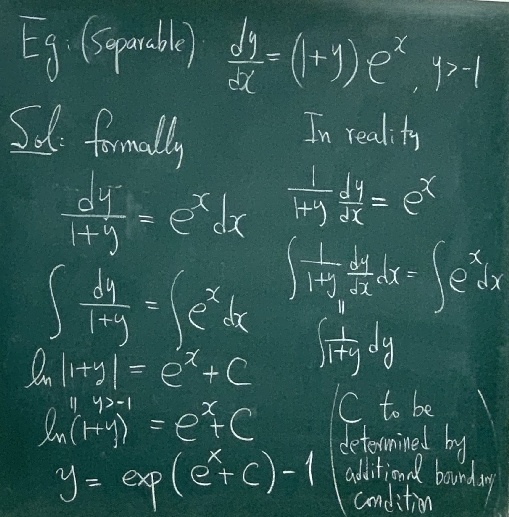 Eg: (Separable) dy/dx = (1+y) e^x, y>-1
Sol: formally
dy/(1+y) = e^x dx
∫ dy/(1+y) = ∫ e^x dx
ln |1+y| = e^x + C
|| y>-1
ln (1+y) = e^x + C
y = exp (e^x + C) - 1
In reality
1/(1+y) dy/dx = e^x
∫ 1/(1+y) dy/dx dx = ∫ e^x dx
||
∫ 1/(1+y) dy
(C to be
determined by
additional boundary
condition)